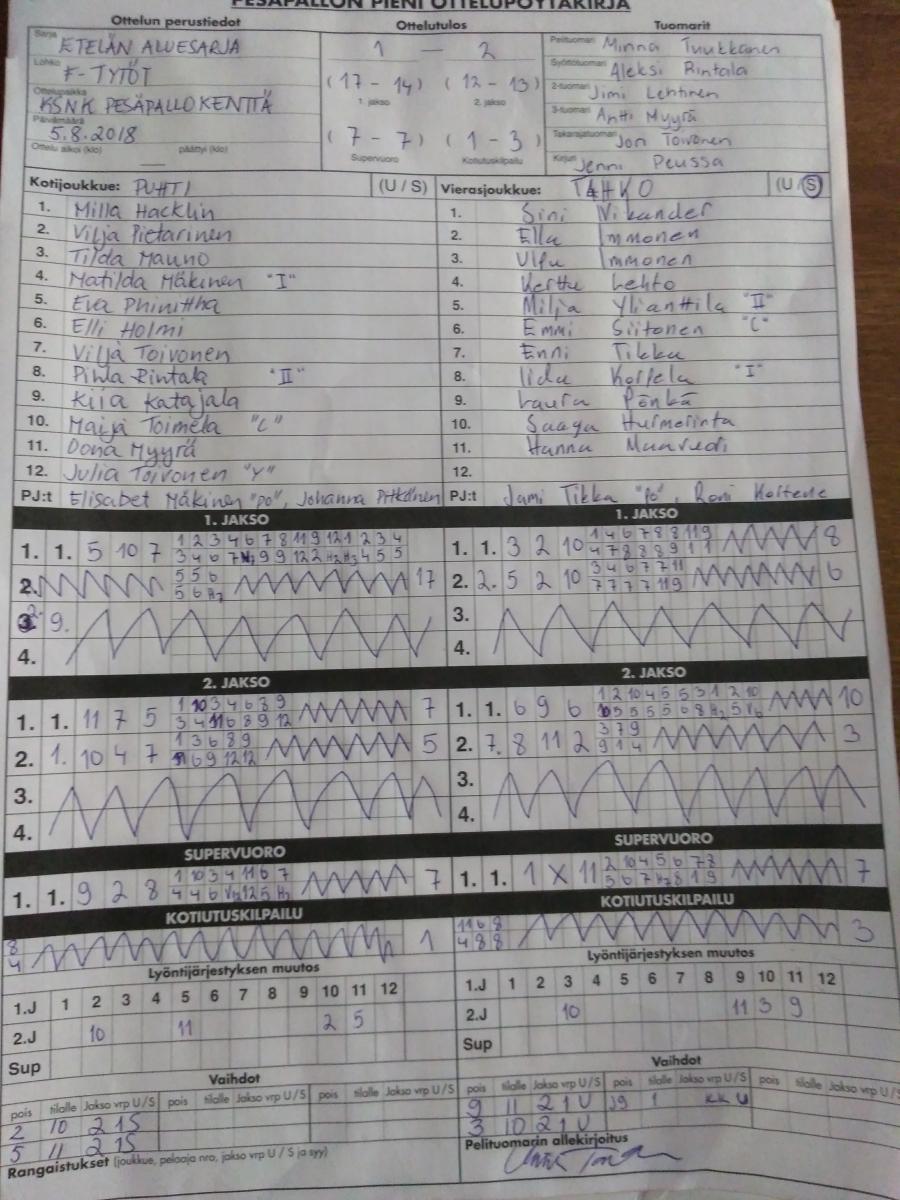 PESÄPALLON PIENI OTTELUPÖYTÄKIRJA
Ottelun perustiedot Ottelutulos Tuomarit
Sarja ETELÄN ALUESARJA
Lohko F-TYTÖT
Ottelupaikka KSNK PESÄPALLOKENTTÄ
Päivämäärä 5.8.2018
Ottelu alkoi (klo) päättyi (klo)
1 – 2
(17 - 14) (12 - 13)
1. jakso 2. jakso
(7 - 7) (1 - 3)
Supervuoro Kotiutuskilpailu
Pelituomari Minna Tuukkanen
Syöttötuomari Aleksi Rintala
2-tuomari Jimi Lehtinen
3-tuomari Antti Myyrä
Takarajatuomari Jon Toivonen
Kirjuri Jenni Peussa
Kotijoukkue: PUHTI (U / S)
1. Milla Hacklin
2. Vilja Pietarinen
3. Tilda Mauno
4. Matilda Mäkinen "I"
5. Eva Phinittha
6. Elli Holmi
7. Vilja Toivonen
8. Pihla Rintala "II"
9. Kiia Katajala
10. Maija Toimela "C"
11. Oona Myyrä
12. Julia Toivonen "Y"
PJ:t Elisabet Mäkinen "PO", Johanna Pitkänen
Vierasjoukkue: TAHKO (U / S)
1. Sini Vikander
2. Ella Immonen
3. Ulpu Immonen
4. Kerttu Lehto
5. Milja Ylianttila "II"
6. Emmi Siitonen "C"
7. Enni Tikka
8. Iida Korpela "I"
9. Laura Pönkä
10. Saaga Hurmerinta
11. Hanna
12.
PJ:t Jami Tikka "PO", Roni
1. JAKSO
1. 1. 5 10 7
1 2 3 4 6 7 8 11 9 12 1 2 3 4
2.
5 5 6
5 6 H2
17
2. 9.
4.
1. JAKSO
1. 1. 3 2 10
1 4 6 7 8 8 11 9
4 7 8 8 8 9 1 1
8
2. 2. 5 2 10
3 4 6 7 7 11
7 7 7 7 11 9
6
3.
4.
2. JAKSO
1. 1. 11 7 5
1 10 3 4 6 8 9
3 4 11 6 8 9 12
7
2. 1. 10 4 7
1 3 6 8 9
6 9 12 12
5
3.
4.
2. JAKSO
1. 1. 6 9 6
1 2 10 4 5 5 3 1 2 10
10 5 5 5 5 6 8 H2 5
10
2. 7. 8 11 2
3 7 9
9 1 4
3
3.
4.
SUPERVUORO
1. 1. 9 2 8
1 10 3 4 11 6 7
4 4 6 12 5 H2
7
SUPERVUORO
1. 1. 1 X 11
2 10 4 5 6 7 8
5 6 7 H2 8 1 9
7
KOTIUTUSKILPAILU
8
4
1
KOTIUTUSKILPAILU
11 6 8
4 8 8
3
Lyöntijärjestyksen muutos
1.J 1 2 3 4 5 6 7 8 9 10 11 12
2.J 10 11 2 5
Sup
Lyöntijärjestyksen muutos
1.J 1 2 3 4 5 6 7 8 9 10 11 12
2.J 10 11 3 9
Sup
Vaihdot
pois tilalle Jakso vrp U/S pois tilalle Jakso vrp U/S pois tilalle Jakso vrp U/S
2 10 2 1 S
5 11 2 1 S
Vaihdot
pois tilalle Jakso vrp U/S pois tilalle Jakso vrp U/S pois tilalle Jakso vrp U/S
9 11 2 1 U 1 KK U
3 10 2 1 U
Rangaistukset (joukkue, pelaaja nro, jakso vrp U / S ja syy)
Pelituomarin allekirjoitus